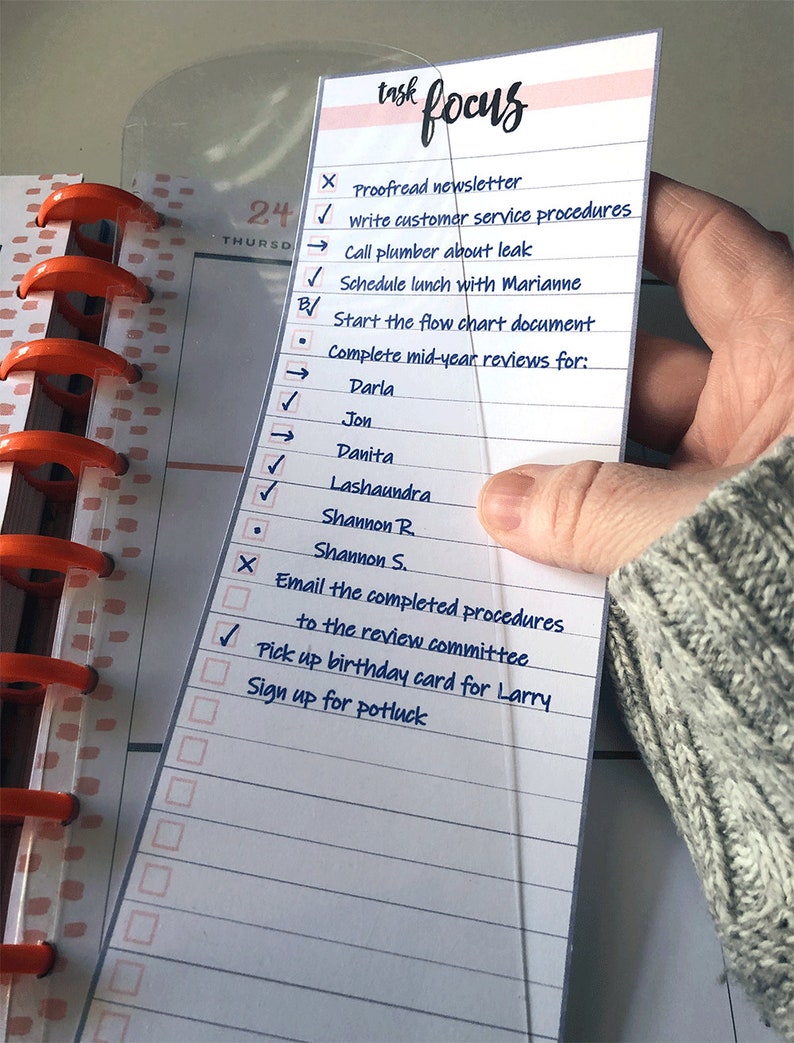 task focus
Proofread newsletter
Write customer service procedures
Call plumber about leak
Schedule lunch with Marianne
B Start the flow chart document
Complete mid-year reviews for:
Darla
Jon
Danita
Lashaundra
Shannon R.
Shannon S.
Email the completed procedures
to the review committee
Pick up birthday card for Larry
Sign up for potluck
24
THURSD